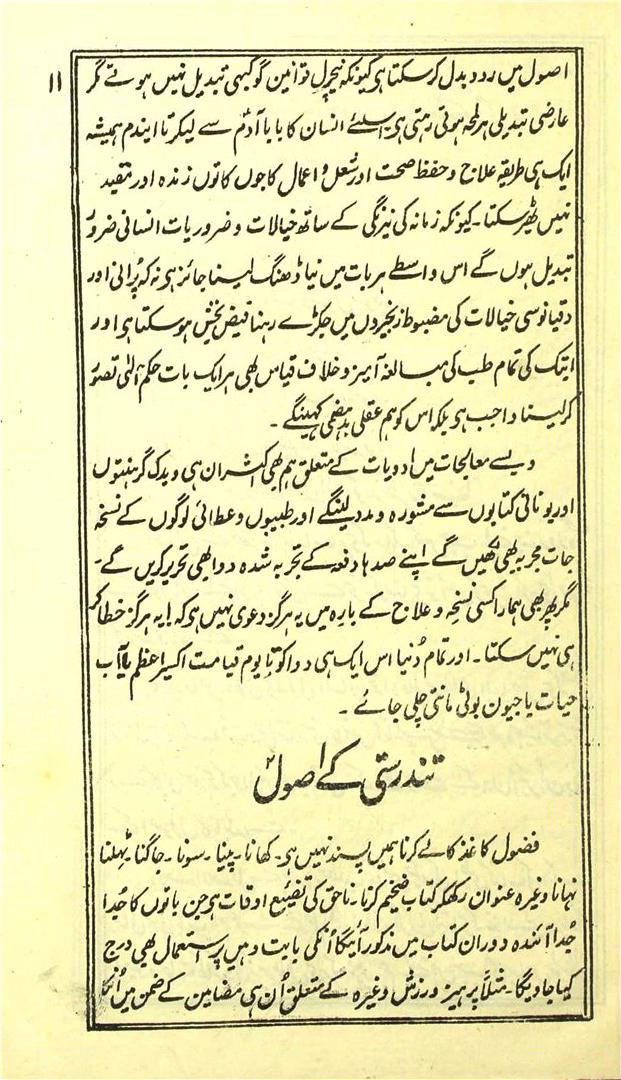 ۱۱
اصول میں ردوبدل کرسکتا ہی کیونکہ نیچرل قوانین گو کبھی تبدیل نہیں ہوتے مگر
عارضی تبدیلی ہرلمحہ ہوتی رہتی ہی۔ اسلئے انسان کا بابا آدم سے لیکر تا ایندم ہمیشہ
ایک ہی طریقہ علاج و حفظ صحت اور شغل و اعمال کا جوں کا توں زندہ اور مفید
نہیں ٹھہر سکتا۔ کیونکہ زمانہ کی نیرنگی کے ساتھ خیالات و ضروریات انسانی ضرور
تبدیل ہوں گے اس واسطے ہر بات میں نیا ڈھنگ لینا جائز ہی نہ کہ پُرانی اور
دقیانوسی خیالات کی مضبوط زنجیروں میں جکڑے رہنا فیض بخش ہوسکتا ہی اور
ابتک کی تمام طب کی مبالغہ آمیز و خلاف قیاس بھی ہر ایک بات حکم الٰہی تصور
کرلینا واجب ہی بلکہ اس کو ہم عقلی بدہضمی کہینگے۔
ویسے معالجات میں ادویات کے متعلق ہم بھی اکثر ان ہی ویدک گرنتھوں
اور یونانی کتابوں سے مشورہ و مدد لینگے اور طبیبوں و عطائی لوگوں کے نسخہ
جات مجربہ بھی لکھیں گے اپنے صدہا دفعہ کے تجربہ شدہ دوا بھی تحریر کریں گے۔
مگر پھر بھی ہمارا کسی نسخہ و علاج کے بارہ میں یہ ہرگز دعوی نہیں ہی کہ! یہ ہرگز خطا کر
ہی نہیں سکتا۔ اور تمام دُنیا اس ایک ہی دوا کو تا یوم قیامت اکسیر اعظم یا آب
حیات یا جیون بوٹی مانتی چلی جائے۔
تندرستی کے اصول
فضول کاغذ کالے کرنا ہمیں پسند نہیں ہی۔ کھانا۔ پینا۔ سونا۔ جاگنا۔ ٹہلنا
نہانا وغیرہ عنوان رکھکر کتاب ضخیم کرنا۔ ناحق کی تضیع اوقات ہی جن باتوں کا جُدا
جُدا آئندہ دوران کتاب میں مذکور آئیگا اُنکی بابت وہیں پر استعمال بھی درج
کیا جاویگا۔ مثلاً پرہیز ورزش وغیرہ کے متعلق اُن ہی مضامین کے ضمن میں اُنکا